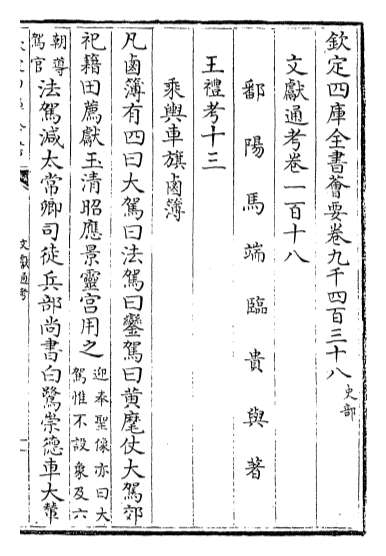 欽定四庫全書薈要卷九千四百三十八 史部
文獻通考卷一百十八
鄱陽馬端臨貴與著
王禮考十三
乘輿車旗鹵簿
凡鹵簿有四曰大駕曰法駕曰鑾駕曰黃麾仗大駕郊
祀籍田薦獻玉清昭應景靈宫用之 迎奉聖像亦曰大
駕惟不設象及六
朝導
駕官 法駕減太常卿司徒兵部尚書白鷺崇德車大輦
文獻通考
一